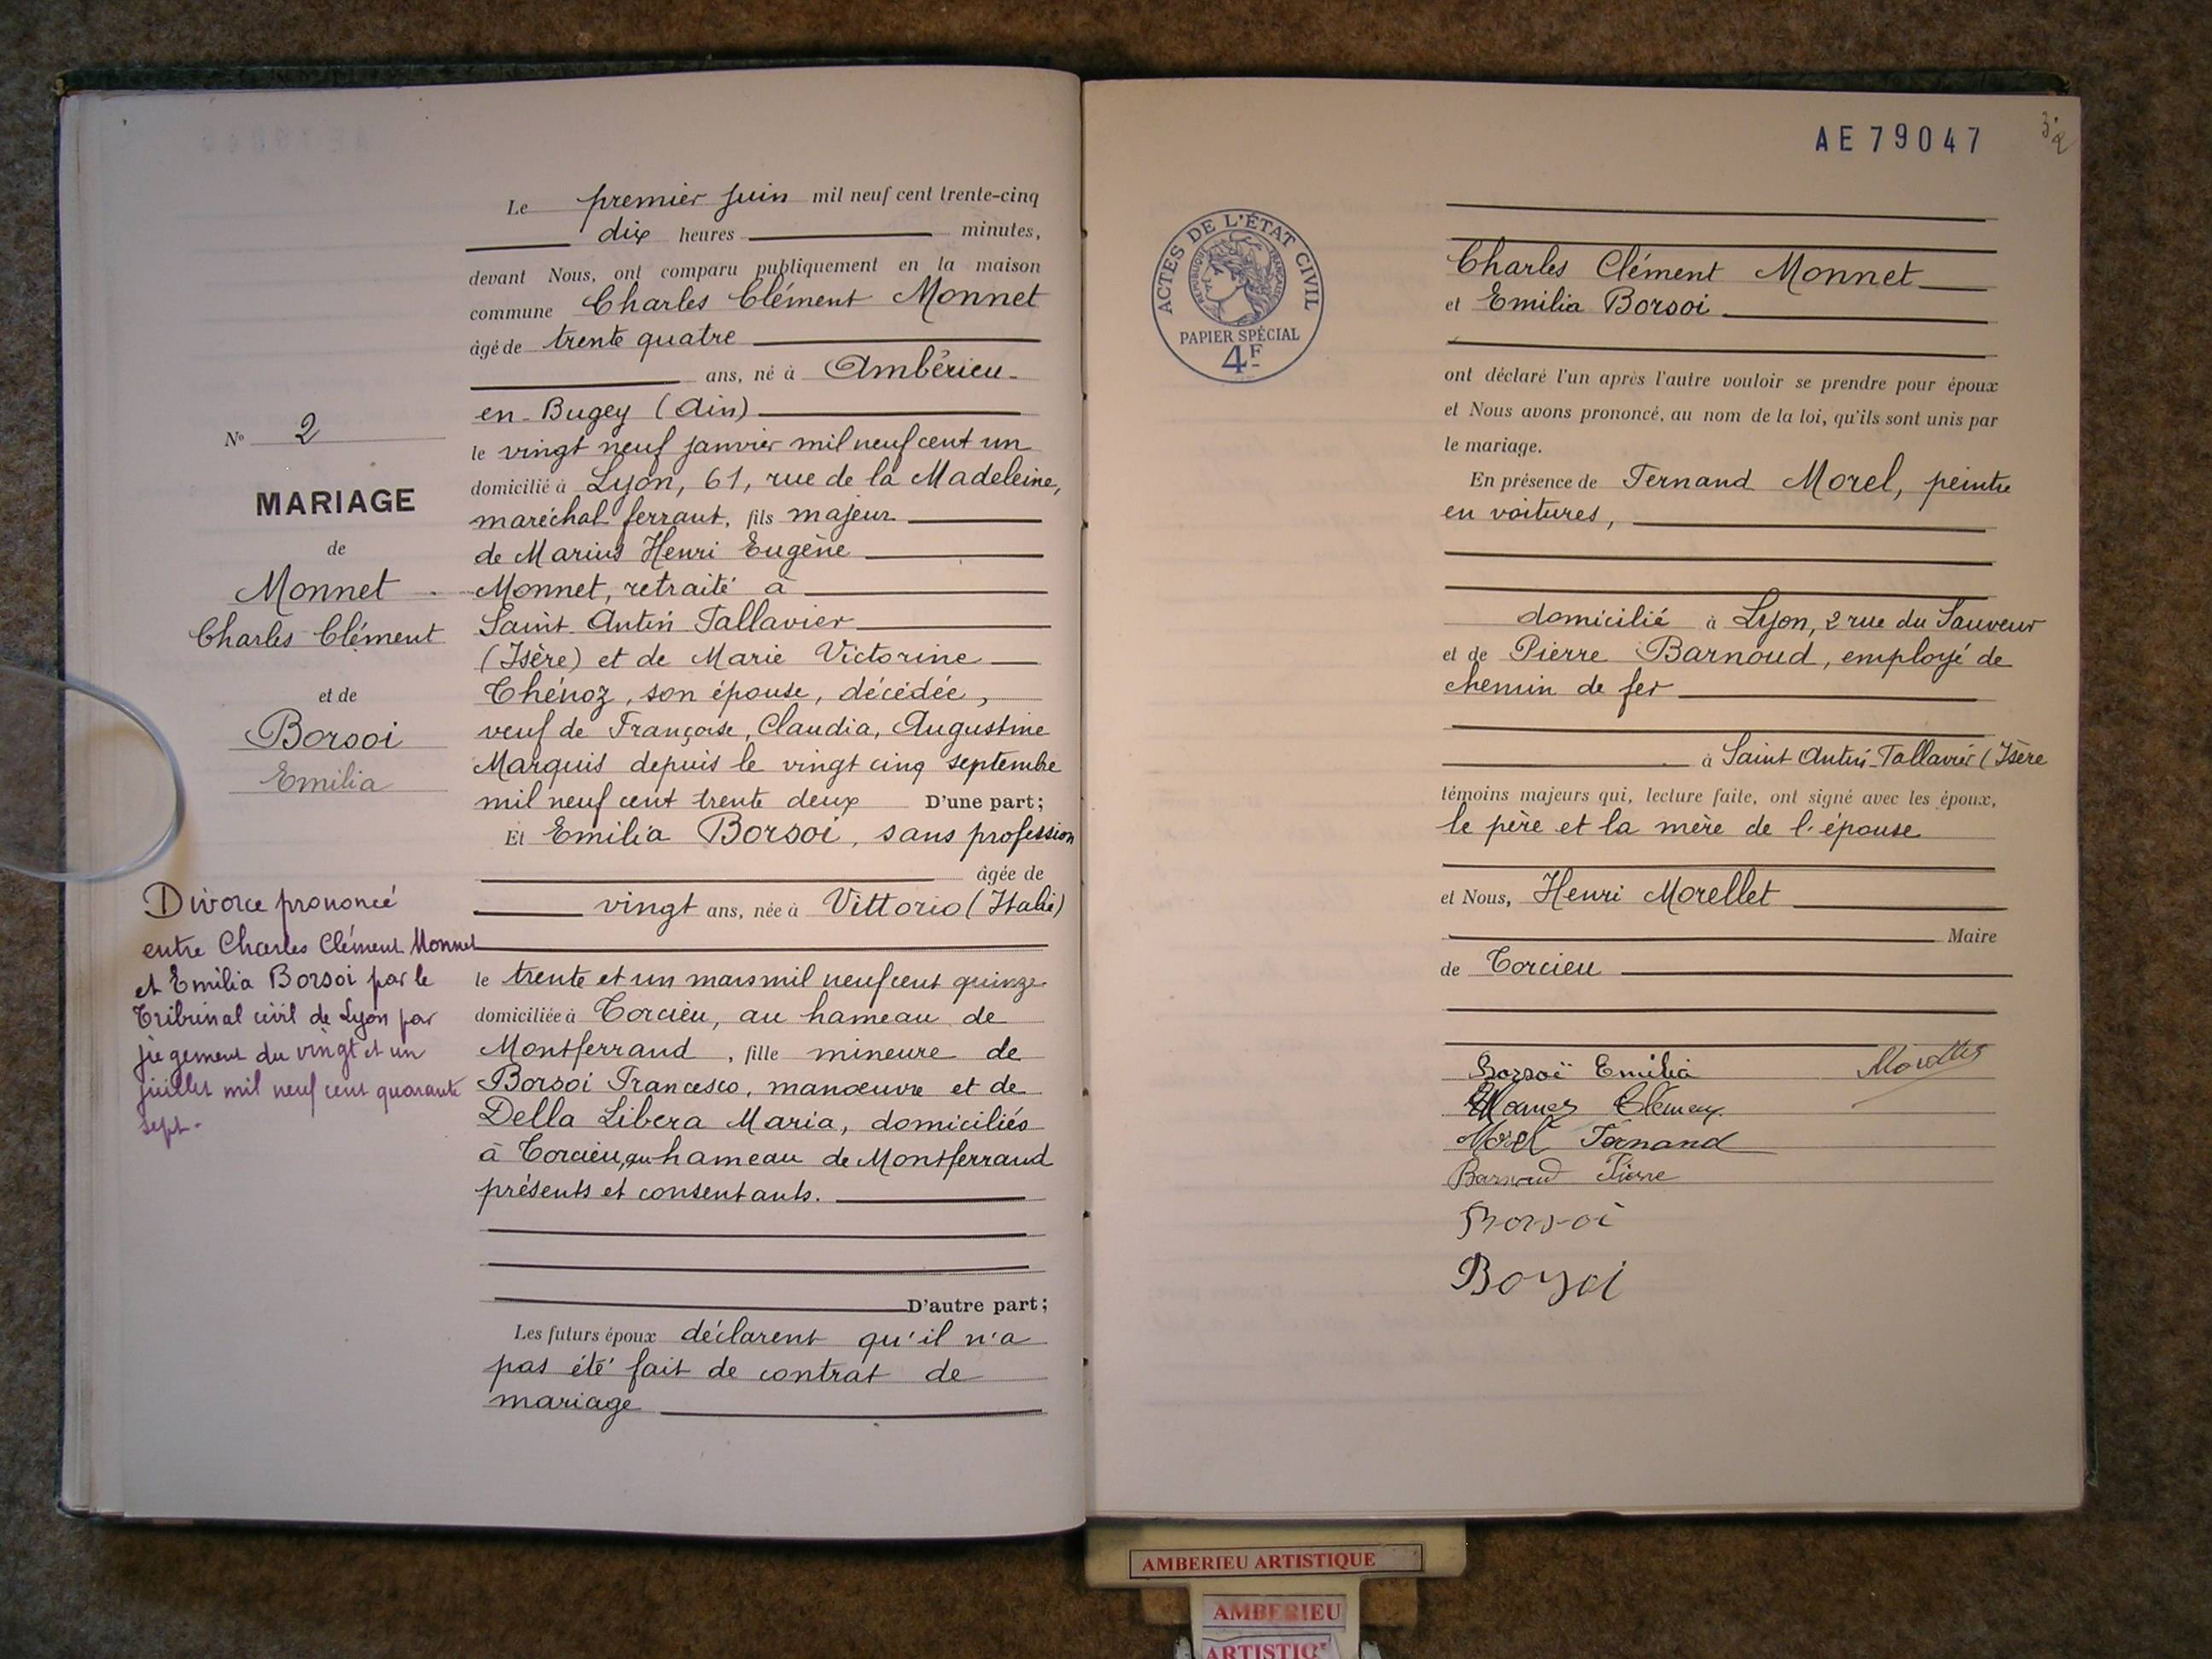 Le premier juin mil neuf cent trente-cinq
dix heures minutes,
devant Nous, ont comparu publiquement en la maison
commune Charles Clément Monnet
âgé de trente quatre
ans, né à Ambérieu-
en-Bugey (Ain)
le vingt neuf janvier mil neuf cent un
domicilié à Lyon, 61, rue de la Madeleine,
maréchal ferrant, fils majeur
de Marius Henri Eugène
Monnet, retraité à
Saint Antin Tallavier
(Isère) et de Marie Victorine
Thénoz, son épouse, décédée,
veuf de Françoise, Claudia, Augustine
Marquis depuis le vingt cinq septembre
mil neuf cent trente deux D'une part;
Et Emilia Borsoi, sans profession
âgée de
vingt ans, née à Vittorio (Italie)
le trente et un mars mil neuf cent quinze
domiciliée à Torcieu, au hameau de
Montferrand, fille mineure de
Borsoi Francesco, manœuvre et de
Della Libera Maria, domiciliés
à Torcieu, au hameau de Montferrand
présents et consentants.
D'autre part;
Les futurs époux déclarent qu'il n'a
pas été fait de contrat de
mariage
N° 2
MARIAGE
de
Monnet
Charles Clément
et de
Borsoi
Emilia
Divorce prononcé
entre Charles Clément Monnet
et Emilia Borsoi par le
Tribunal civil de Lyon par
jugement du vingt et un
juillet mil neuf cent quarante
sept.
AE 79047
ACTES DE L'ÉTAT CIVIL
RÉPUBLIQUE FRANÇAISE
PAPIER SPÉCIAL
4F
Charles Clément Monnet
et Emilia Borsoi
ont déclaré l'un après l'autre vouloir se prendre pour époux
et Nous avons prononcé, au nom de la loi, qu'ils sont unis par
le mariage.
En présence de Fernand Morel, peintre
en voitures,
domicilié à Lyon, 2 rue du Sauveur
et de Pierre Barnoud, employé de
chemin de fer
à Saint Antin-Tallavier (Isère
témoins majeurs qui, lecture faite, ont signé avec les époux,
le père et la mère de l'épouse
et Nous, Henri Morellet
Maire
de Torcieu
Borsoï Emilia
Morel Fernand
Barnoud Pierre
Borsoi
Borsoi
AMBERIEU ARTISTIQUE
AMBERIEU
ARTISTIQ